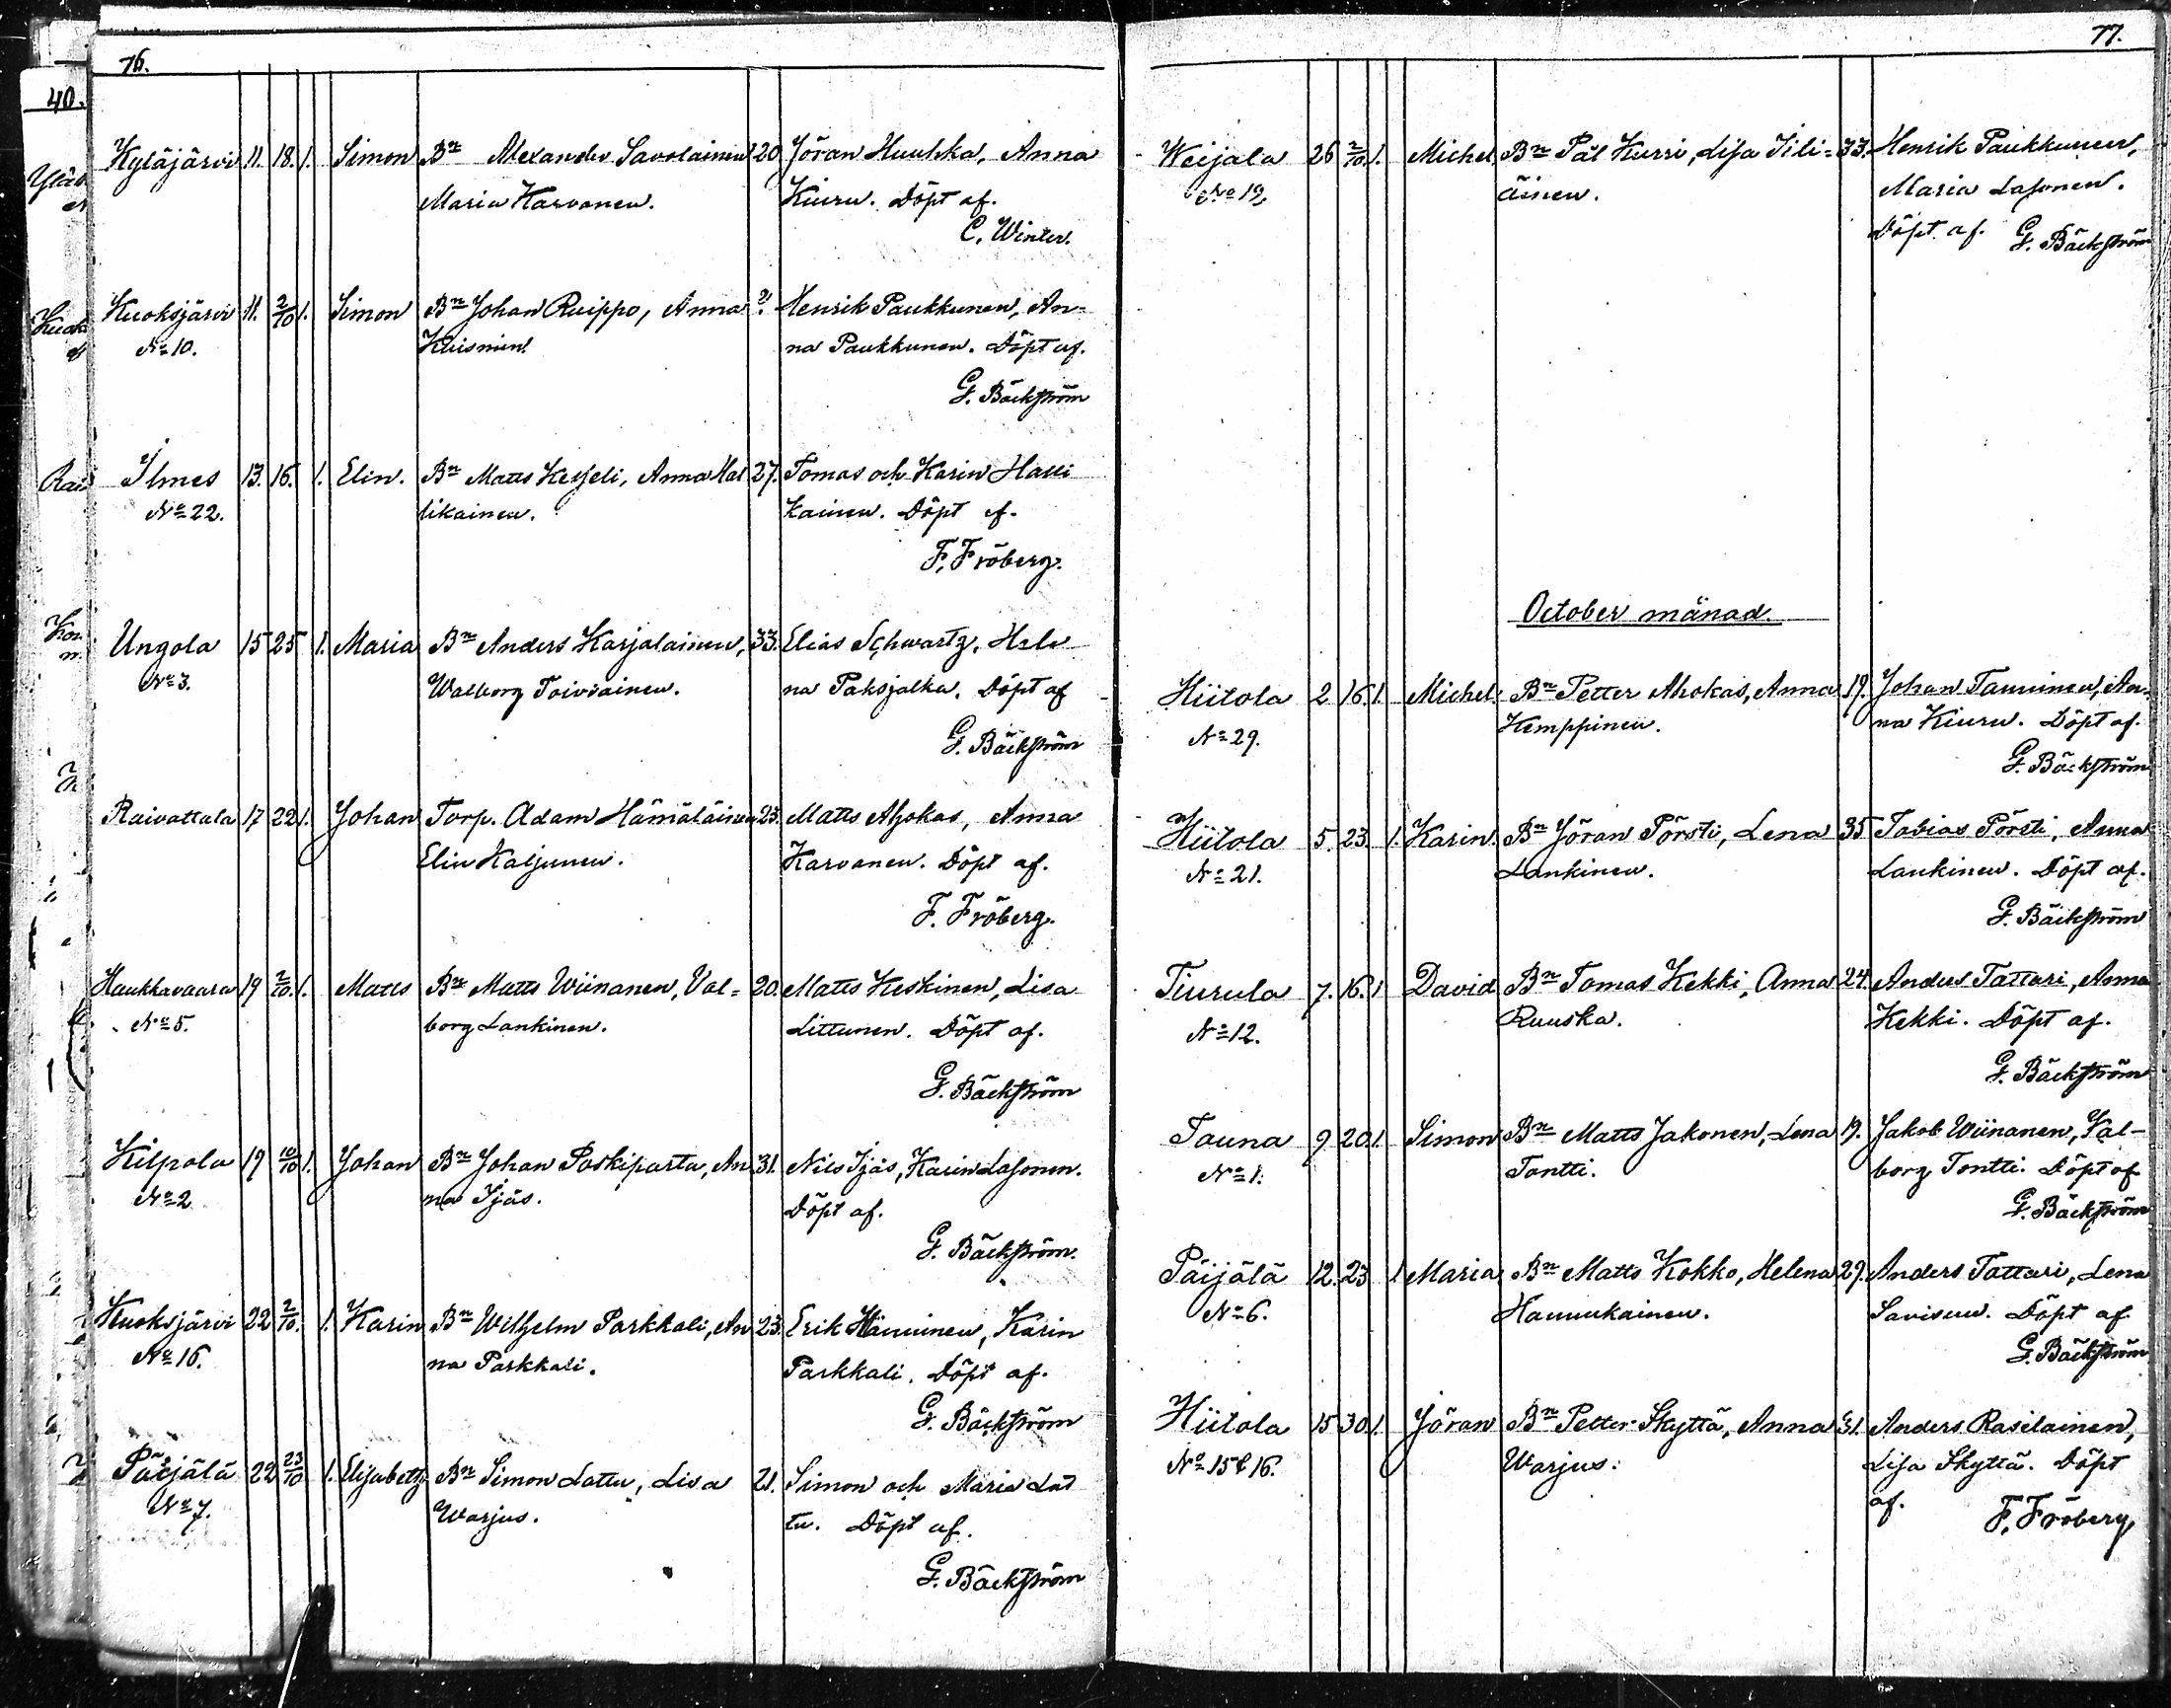 76.
40.
Kyläjärvi 11. 18. 1. Simon Bn Alexander Savolainen 20 Jöran Huuhka, Anna
Maria Karvanen. Kiuru. Döpt af.
C. Winter.
Kuoksjärvi 11. 2/10 1. Simon Bn Johan Ruippo, Anna ? Henrik Paukkunen, An-
No 10. Kuisminen na Paukkunen. Döpt af.
G. Bäckström
Ilmes 13. 16. 1. Elin. Bn Matts Kesseli, Anna Hal 27. Tomas och Karin Halli
No 22. likainen. kainen. Döpt af.
F. Fröberg.
Ungola 15 25 1. Maria Bn Anders Karjalainen, 33. Elias Schwartz, Hele
No 3. Walborg Toiviainen. na Paksjalka. Döpt af
G. Bäckström
Raivattala 17 22 1. Johan Torp. Adam Hämäläinen 23. Matts Ahokas, Anna
Elin Kaljunen. Karvanen. Döpt af.
F. Fröberg.
Haukkavaara 19 2/10. 1. Matts Bn Matts Wiinanen, Val= 20. Matts Keskinen, Lisa
No 5. borg Lankinen. Littunen. Döpt af.
G. Bäckström
Kilpola 19 10/10 1. Johan Bn Johan Paskiparta, An 31. Nils Ijäs, Karin Lasonen.
No 2 na Ijäs. Döpt af.
G. Bäckström.
Kuoksjärvi 22 2/10. 1. Karin Bn Wilhelm Parkkali, An 23. Erik Hänninen, Karin
No 16. na Parkkali. Parkkali. Döpt af.
G. Bäckström
Päijälä 22 23/10 1. Elisabeth Bn Simon Lattu, Lisa 21. Simon och Maria Lat
No 7. Warjus. tu. Döpt af.
G. Bäckström
77.
Weijala 26 2/10 1. Michel Bn Pål Hurri, Lisa Iili= 33. Henrik Paukkunen,
No 19, äinen. Maria Lasonen.
Döpt af. G. Bäckström
October månad.
Hiitola 2 16. 1. Michel Bn Petter Ahokas, Anna 19. Johan Tanninen, An-
No 29. Kemppinen. na Kiuru. Döpt af.
G. Bäckström
Hiitola 5. 23. 1. Karin. Bn Jöran Pörsti, Lena 35 Tobias Pörsti, Anna
No 21. Lankinen. Lankinen. Döpt af.
G. Bäckström
Tiurula 7. 16. 1 David Bn Tomas Kekki, Anna 24. Anders Tattari, Anna
No 12. Ruuska. Kekki. Döpt af.
G. Bäckström
Tauna 9 20 1. Simon Bn Matts Jakonen, Lena 19. Jakob Wiinanen, Val-
No 1. Tontti. borg Tontti. Döpt af
G. Bäckström
Päijälä 12. 23 1 Maria Bn Matts Kokko, Helena 29. Anders Tattari, Lena
No 6. Hannukainen. Savisuu. Döpt af.
G. Bäckström
Hiitola 15 30 1. Jöran Bn Petter Skyttä, Anna 31. Anders Rasilainen,
No 15 & 16. Warjus. Lisa Skyttä. Döpt
af. F. Fröberg